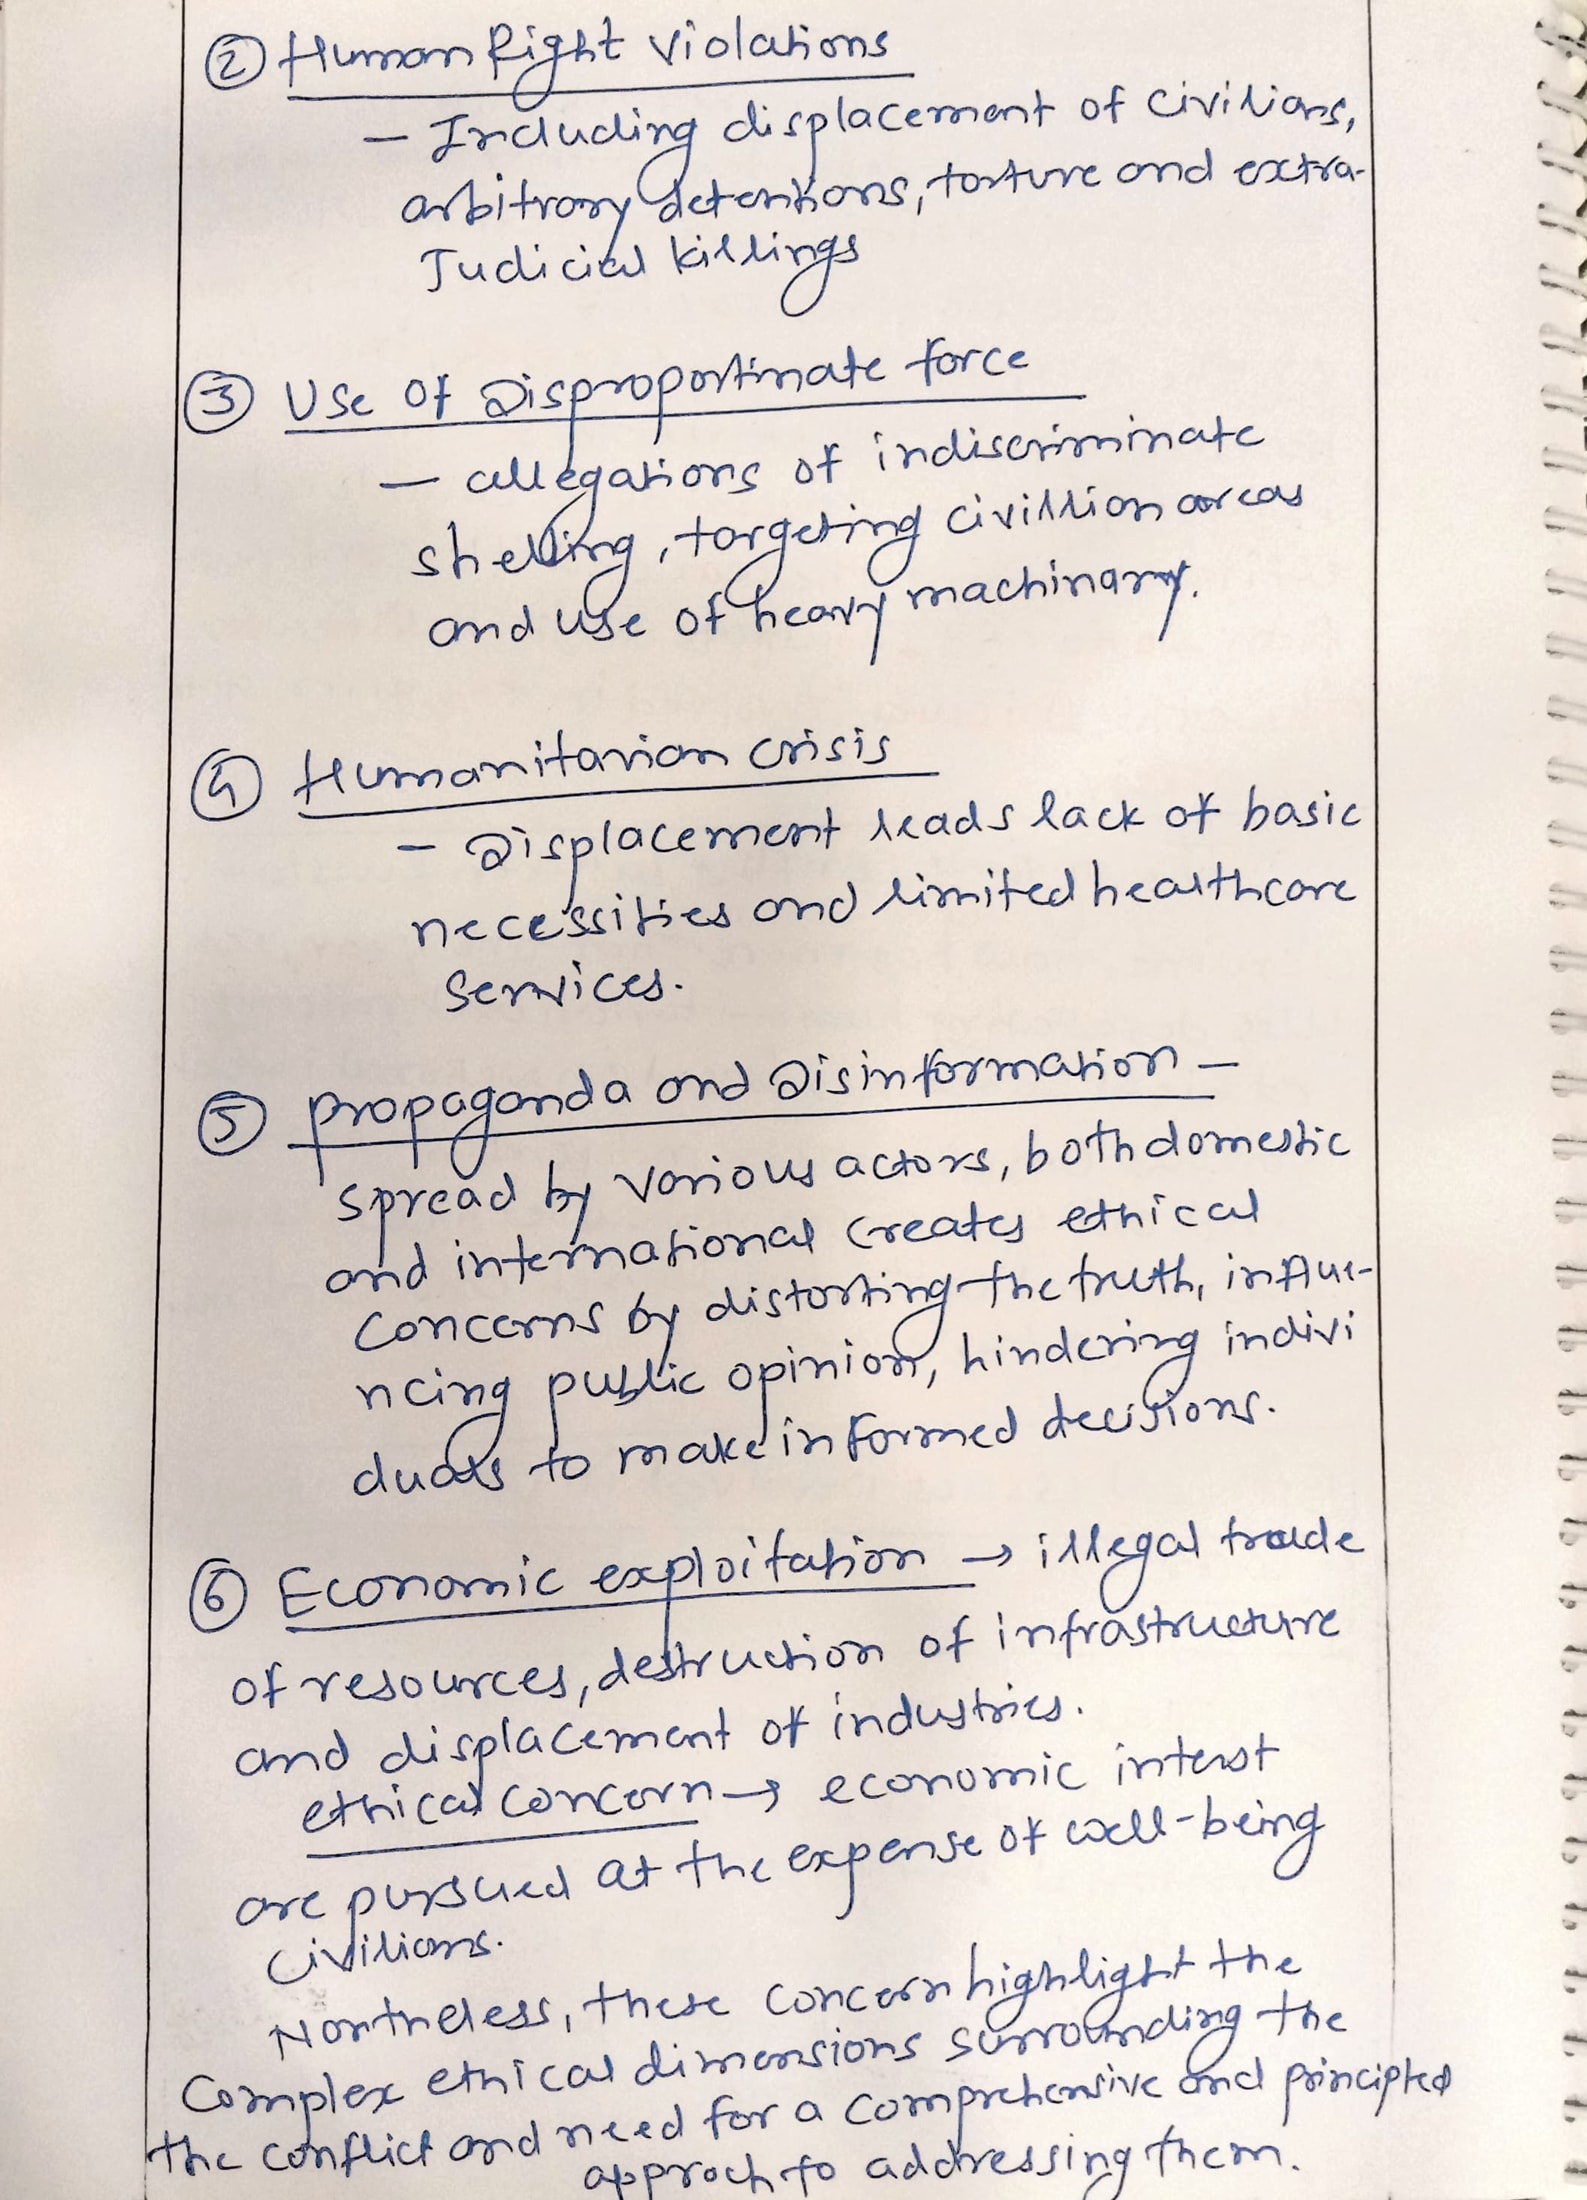 ② Human Right Violations
- Including displacement of civilians,
arbitrary detentions, torture and extra-
Judicial killings
③ Use of Disproportinate force
- allegations of indiscriminate
shelling, targeting civillion areas
and use of heavy machinary.
④ Humanitarian crisis
- Displacement leads lack of basic
necessities and limited healthcare
services.
⑤ propaganda and Disinformation -
spread by various actors, both domestic
and international creates ethical
concerns by distorting the truth, influe-
ncing public opinion, hindering indivi
duals to make informed decisions.
⑥ Economic exploitation → illegal trade
of resources, destruction of infrastructure
and displacement of industries.
ethical concern → economic interst
are pursued at the expense of well-being
civilians.
Nontheless, these concern highlight the
complex ethical dimensions surrounding the
the conflict and need for a comprehensive and principled
approch to addressing them.